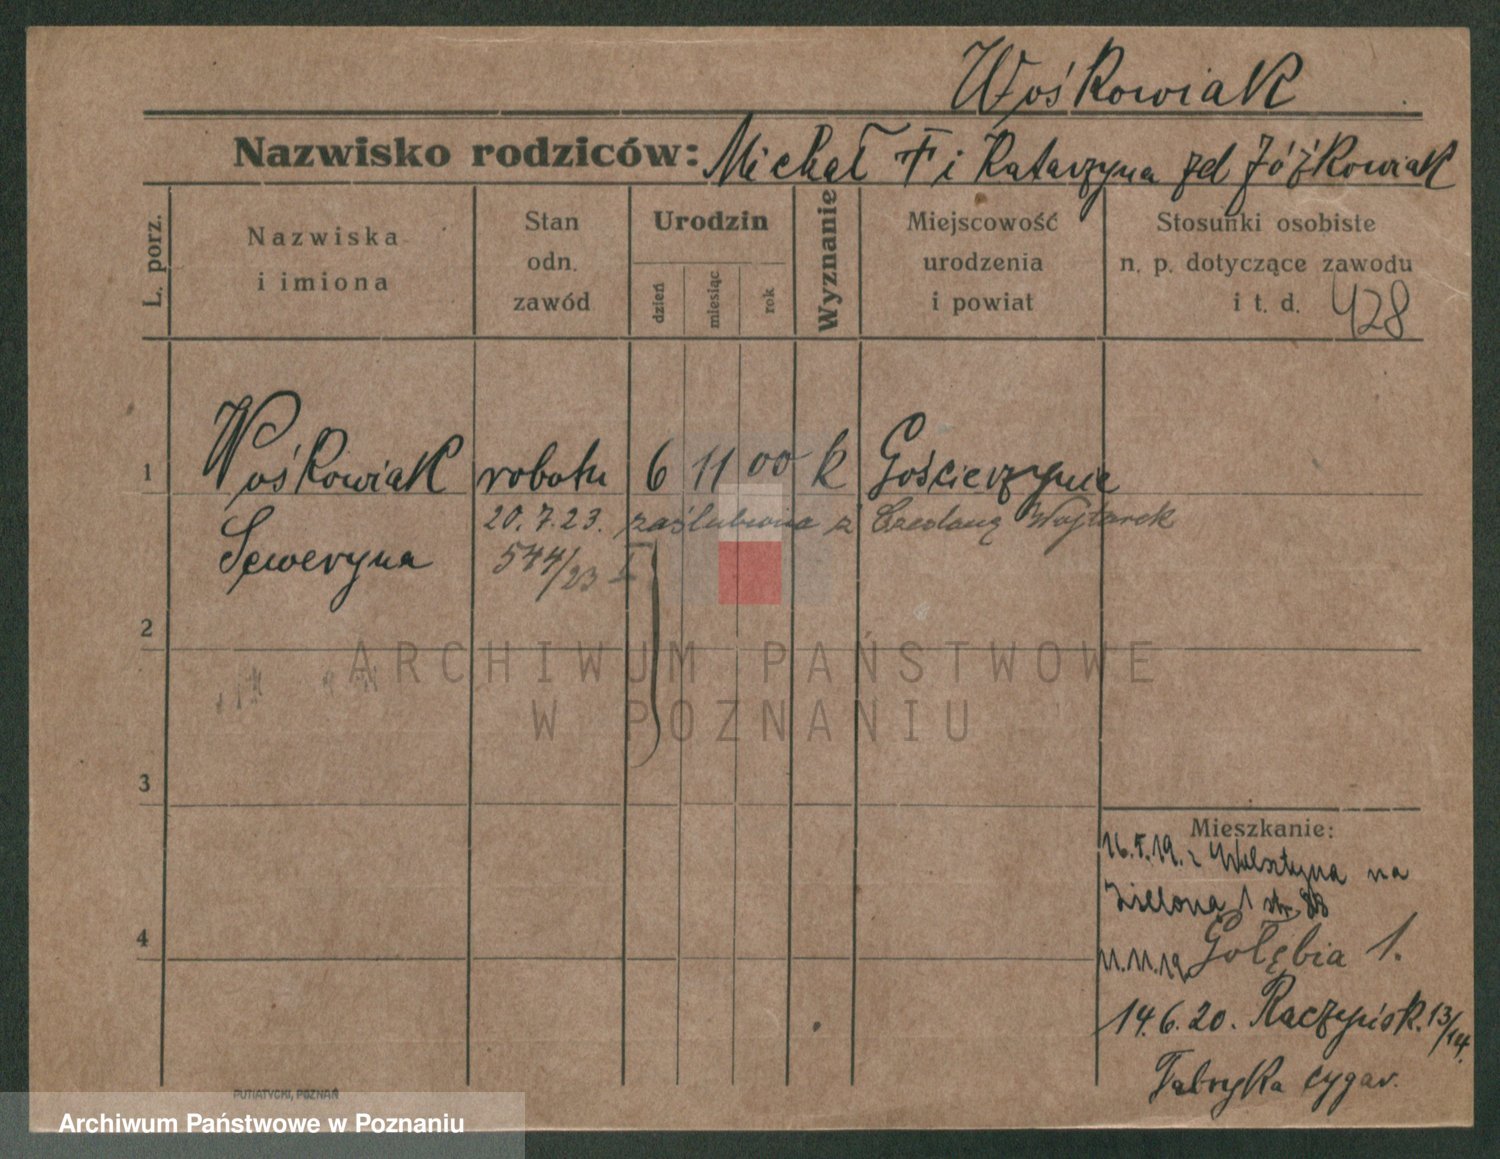 Wośkowiak
Nazwisko rodziców: Michał † i Katarzyna zd Jóźkowiak
L. porz.
Nazwiska
i imiona
Stan
odn.
zawód
Urodzin
dzień
miesiąc
rok
Wyznanie
Miejscowość
urodzenia
i powiat
Stosunki osobiste
n. p. dotyczące zawodu
i t. d. 428
1 Wośkowiak robotn 6 11 00 k Gościerzynie
20.7.23. zaślubiona z Czesławą Wojtarek
Seweryna 544/23 I
2
ARCHIWUM PAŃSTWOWE
W POZNANIU
3
Mieszkanie:
16.5.19. z Wolsztyna na
Zielona 1 str.
4
11.11.19. Gołębia 1.
14.6.20. Raczyńsk. 13/14.
Fabryka cygar.
PUTIATYCKI, POZNAŃ
Archiwum Państwowe w Poznaniu